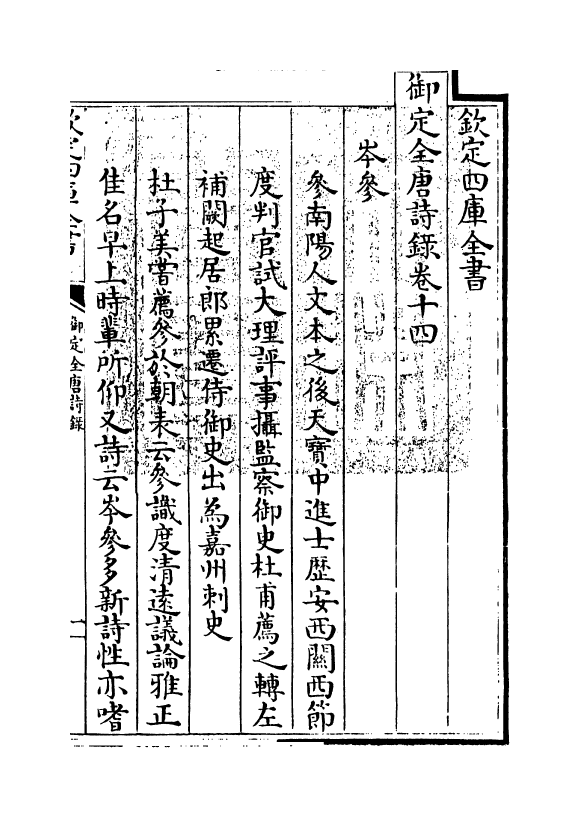 欽定四庫全書
御定全唐詩錄卷十四
岑參
參南陽人文本之後天寶中進士歷安西關西節
度判官試大理評事攝監察御史杜甫薦之轉左
補闕起居郎累遷侍御史出為嘉州刺史
杜子美嘗薦參於朝表云參識度清遠議論雅正
佳名早上時輩所仰又詩云岑參多新詩性亦嗜
欽定四庫全書
御定全唐詩錄
一